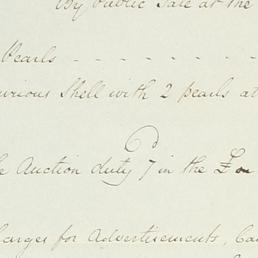 By Public Sale at the
Pearls - - - - - - - - -
urious Shell with 2 pearls at
e Auction duty 7 in the £
arges for Advertisements, Ca